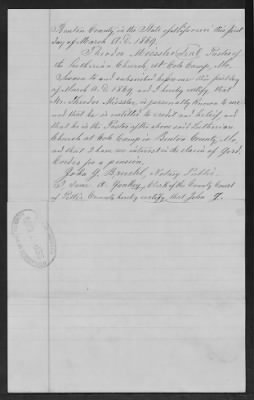 Benton County in the State of Missouri this first
day of March A. D. 1869.
Theodor Meissler Pastor of
the Lutherian Church, at Cole Camp, Mo.
Sworn to and subscribed before me this first day
of March A. D. 1869 and I hereby certify, that
Mr. Theodor Missler, is personally known to me
and that he is entitled to credit and belief, and
that he is the Pastor of the above said Lutherian
Church at Cole Camp in Benton County, Mo,
and that I have no interest in the claim of
for a pension.
John G. Notary Public
Clerk of the County Court
of Pettis County hereby certify, that John G.